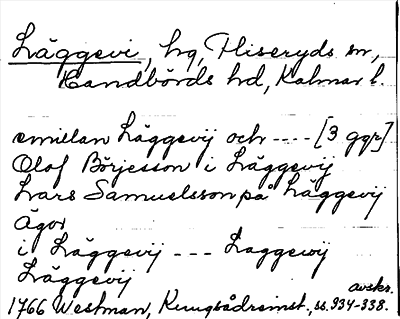 Läggevi, hg, Fliseryds sn,
Handbörds hd, Kalmar l.
emillan Läggevij och ---- [3 ggr]
Olof Börjesson i Läggevij
Lars Samuelsson på Läggevij
Ägor
i Läggevij --- Laggewij
Läggevij
avskr.
1766 Westman, Kungsådreinst., ss. 934-938.